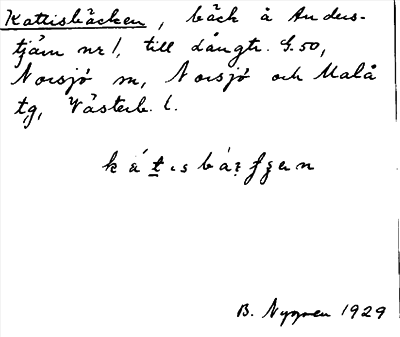 Kattisbäcken, bäck å Anders-
tjärn nr 1, till Långtr. G.50,
Norsjö sn, Norsjö och Malå
tg, Västerb. l.
B. Nygren 1929